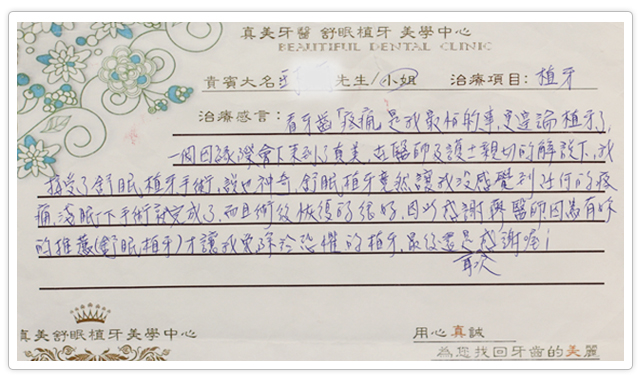 真美牙醫 舒眠植牙 美學中心
BEAUTIFUL DENTAL CLINIC
貴賓大名 先生/小姐 治療項目：植牙
治療感言：看牙齒「疼痛」是我最怕的事，更遑論植牙了，
一個因緣際會下來到了真美，在醫師及護士親切的解說下，我
接受了舒眠植牙手術，說也神奇，舒眠植牙竟然讓我沒感覺到任何的疼
痛，沒眠下手術就完成了，而且術後恢復的很好，因此感謝 醫師因為有妳
的推薦(舒眠植牙)才讓我免除於恐懼的植牙，最後還是感謝喔！
再次
真美舒眠植牙美學中心
用心真誠
為您找回牙齒的美麗